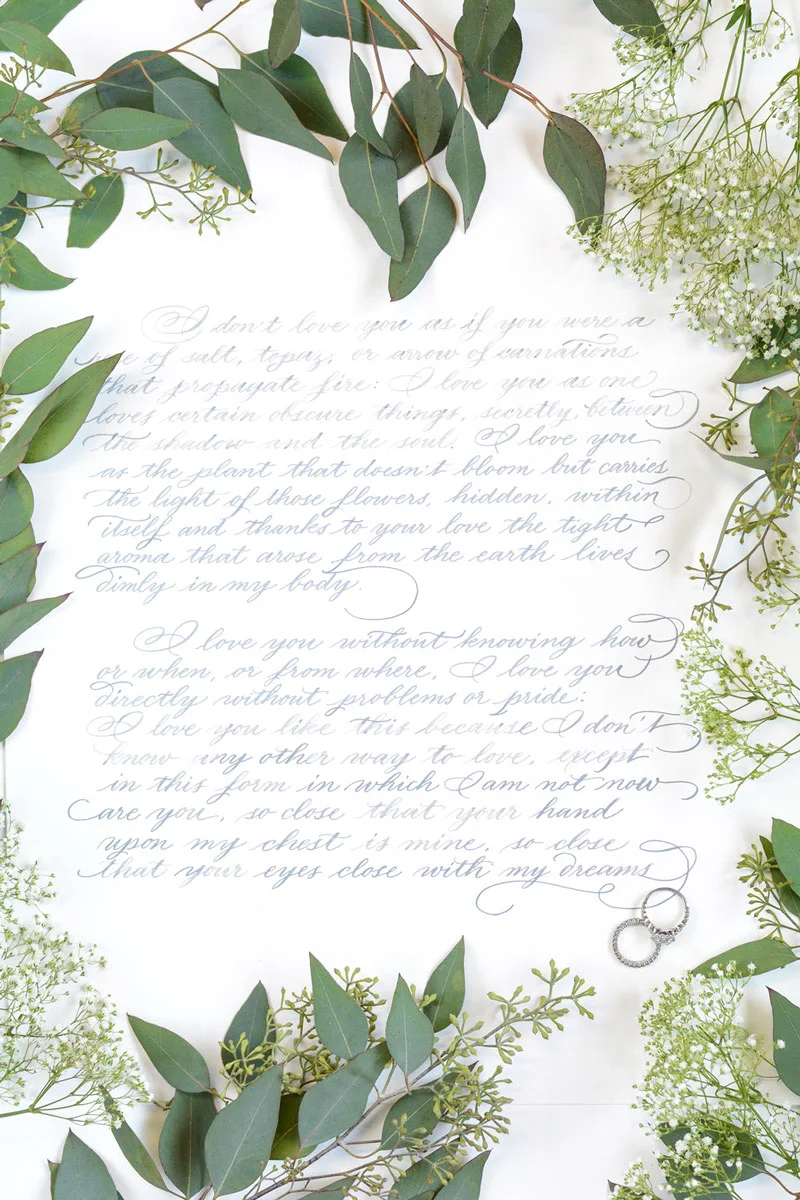 I don't love you as if you were a
rose of salt, topaz, or arrow of carnations
that propagate fire: I love you as one
loves certain obscure things, secretly, between
the shadow and the soul. I love you
as the plant that doesn't bloom but carries
the light of those flowers, hidden, within
itself and thanks to your love the tight
aroma that arose from the earth lives
dimly in my body.
I love you without knowing how
or when, or from where, I love you
directly without problems or pride:
I love you like this because I don't
know any other way to love, except
in this form in which I am not now
are you, so close that your hand
upon my chest is mine, so close
that your eyes close with my dreams